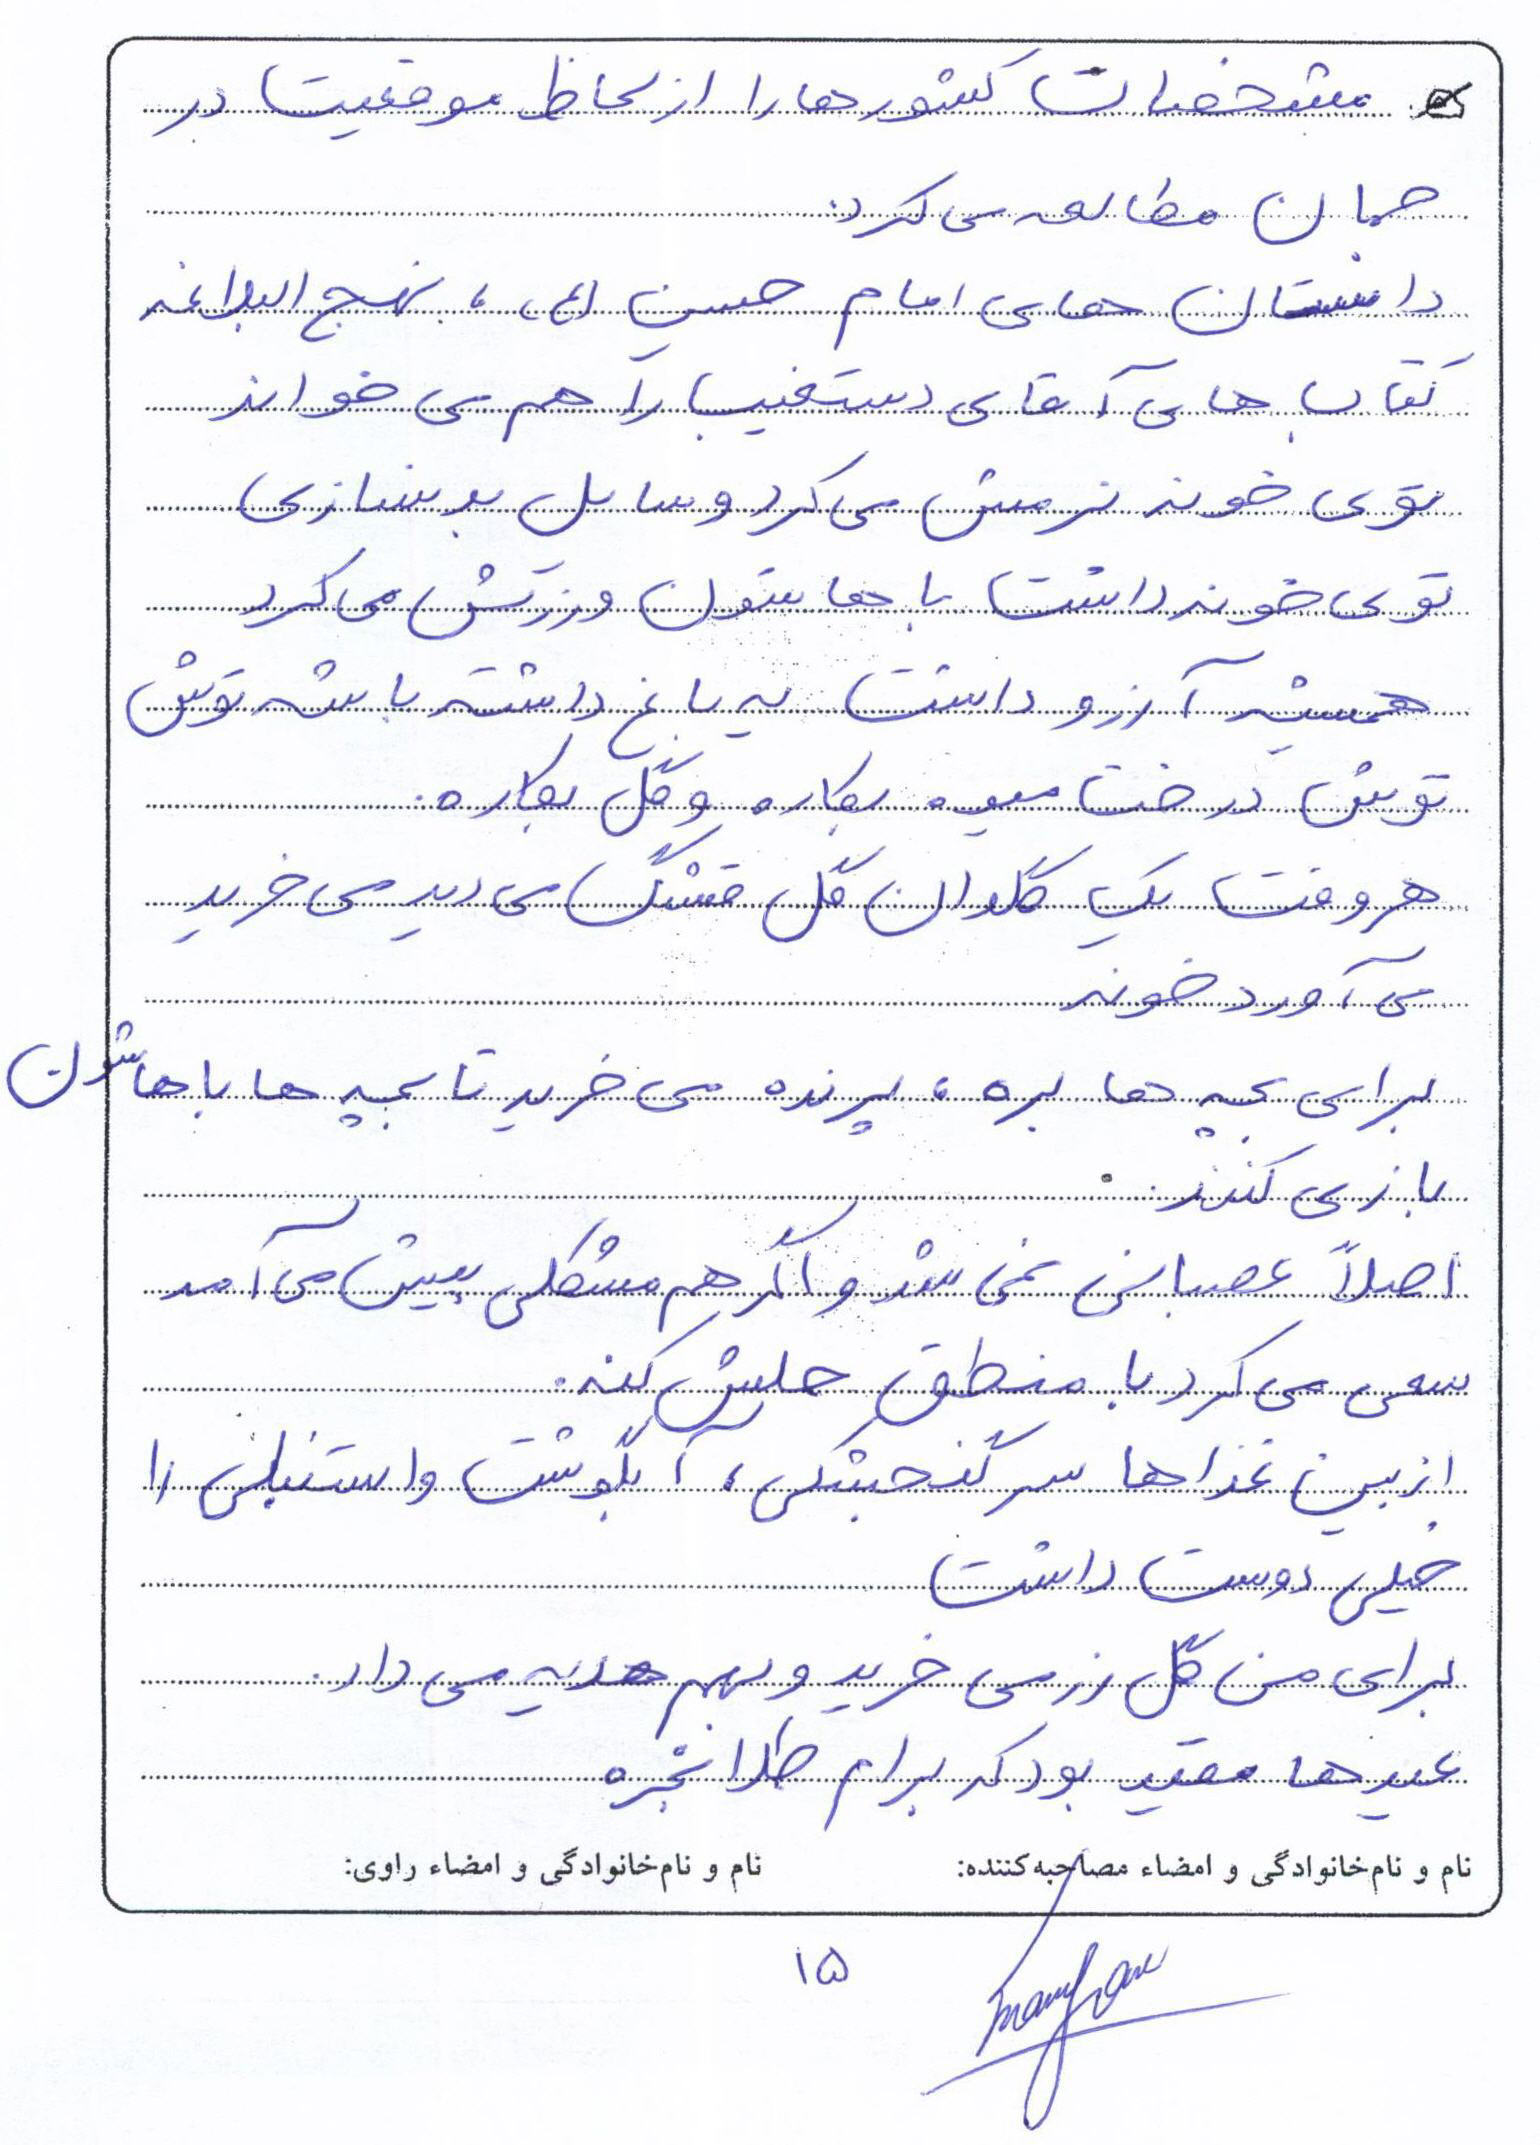 مشخصات کشورها را از لحاظ موقعیت در
جهان مطالعه می کرد.
داستان های امام حسین (ع) ، نهج البلاغه
کتاب های آقای دستغیب را هم می خواند
توی خونه نرمش می کرد وسایل بدنسازی
توی خونه داشت باهاشون ورزش می کرد
همیشه آرزو داشت یه باغ داشته باشه توش
توش درخت میوه بکاره و گل بکاره.
هر وقت یک گلدان گل قشنگ می دید می خرید
می آورد خونه
برای بچه ها بره ، پرنده می خرید تا بچه ها باهاشون
بازی کنند.
اصلاً عصبانی نمی شد و اگر هم مشکلی پیش می آمد
سعی می کرد با منطق حلش کنه.
از بین غذاها سرگنجشکی ، آبگوشت و استنبلی را
خیلی دوست داشت
برای من گل رز می خرید و بهم هدیه می داد.
عیدها مقید بود که برام طلا بخره
نام و نام‌خانوادگی و امضاء مصاحبه‌کننده: نام و نام‌خانوادگی و امضاء راوی:
۱۵